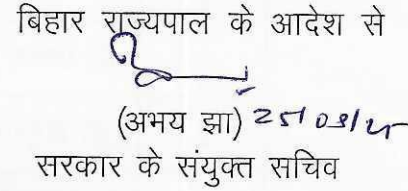 बिहार राज्यपाल के आदेश से
(अभय झा)
सरकार के संयुक्त सचिव